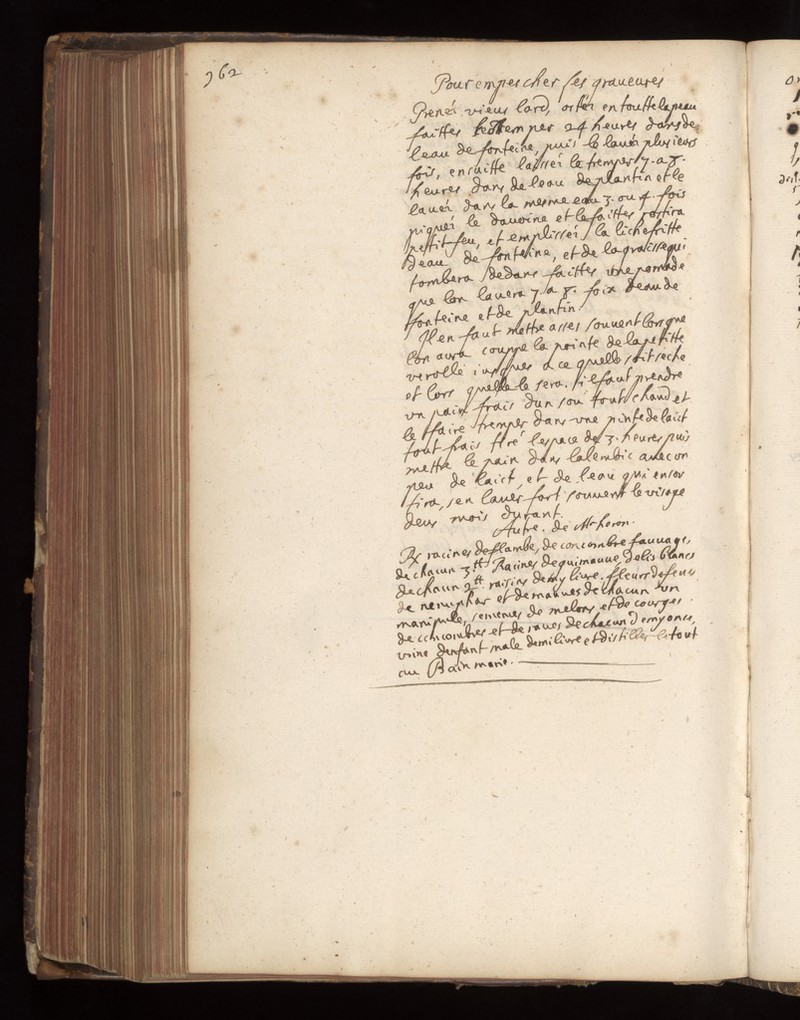 962
Pour empescher les graueures
Prenés vieux lard, ostés en toutte la peau
faittes le tremper 24 heures dans de
leau de fonteine, puis le laués plusieurs
fois, ensuitte laissés le tremper 7. a 8.
heures dans de leau de plantin et le
laués dans la mesme eau 3. ou 4. fois
piqués le dauoine et le faittes rostir a
pettit feu, et emplissés la lichefritte
deau de fonteine, et de la graisse qui
tombera dedans faittes vne pomade
que lon lauera 7. a 8. foix deau de
fonteine et de plantin.
Il en faut mettre asses souuent lors que
lon aura couppé la pointe de la petitte
verolle iusques a ce quelle soit seche
et lors quelle le sera. il faut prendre
vn pain frais dun sou tout chaud et
le faire tremper dans vne pinte de laict
tout frais tiré lespace de 3. heures puis
mettre le pain dans lalembic auec vn
peu de laict, et de leau qui en sor
tira, sen lauer fort souuent le visage
deux mois durant.
Autre. de Mr heron.
℞ racines de flambe, de concombre sauuage,
de chacun 3 ℔ Racines de guimauue, de lis blancs
de chacun 2 ℔. raisins demy liure. fleurs de feues
de nenuphar et de mauues de chacun vn
manipule, semences de melons et de courges
de concombres et de raues de chacun demy once,
vrine denfant male demi liure et distiller le tout
au Bain marie.